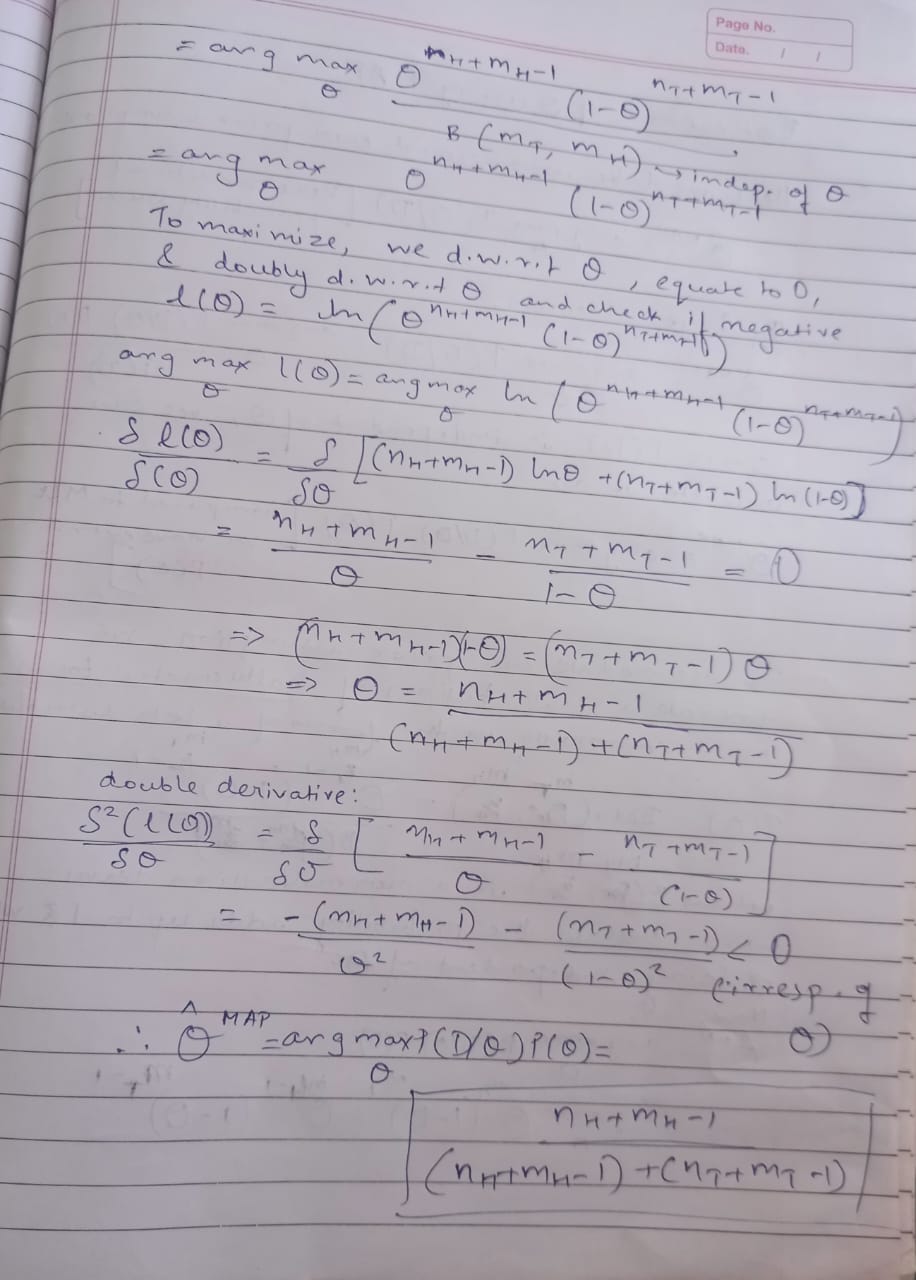 Page No.
Date. / /
= arg max_θ θ^(n_H+m_H-1) (1-θ)^(n_T+m_T-1)
B(m_T, m_H) → indep. of θ
= arg max_θ θ^(n_H+m_H-1) (1-θ)^(n_T+m_T-1)
To maximize, we d.w.r.t θ, equate to 0,
& doubly d.w.r.t θ and check if negative
l(θ) = ln(θ^(n_H+m_H-1) (1-θ)^(n_T+m_T-1))
arg max_θ l(θ) = arg max_θ ln(θ^(n_H+m_H-1) (1-θ)^(n_T+m_T-1))
δl(θ)/δ(θ) = δ/δθ [(n_H+m_H-1) lnθ + (n_T+m_T-1) ln(1-θ)]
= (n_H+m_H-1)/θ - (n_T+m_T-1)/(1-θ) = 0
=> (n_H+m_H-1)(1-θ) = (n_T+m_T-1)θ
=> θ = (n_H+m_H-1)/((n_H+m_H-1)+(n_T+m_T-1))
double derivative:
δ²(l(θ))/δθ = δ/δθ [(n_H+m_H-1)/θ - (n_T+m_T-1)/(1-θ)]
= -(n_H+m_H-1)/θ² - (n_T+m_T-1)/(1-θ)² < 0
(irresp. of θ)
∴ θ̂^MAP = arg max_θ P(D/θ)P(θ) =
(n_H+m_H-1)/((n_H+m_H-1)+(n_T+m_T-1))